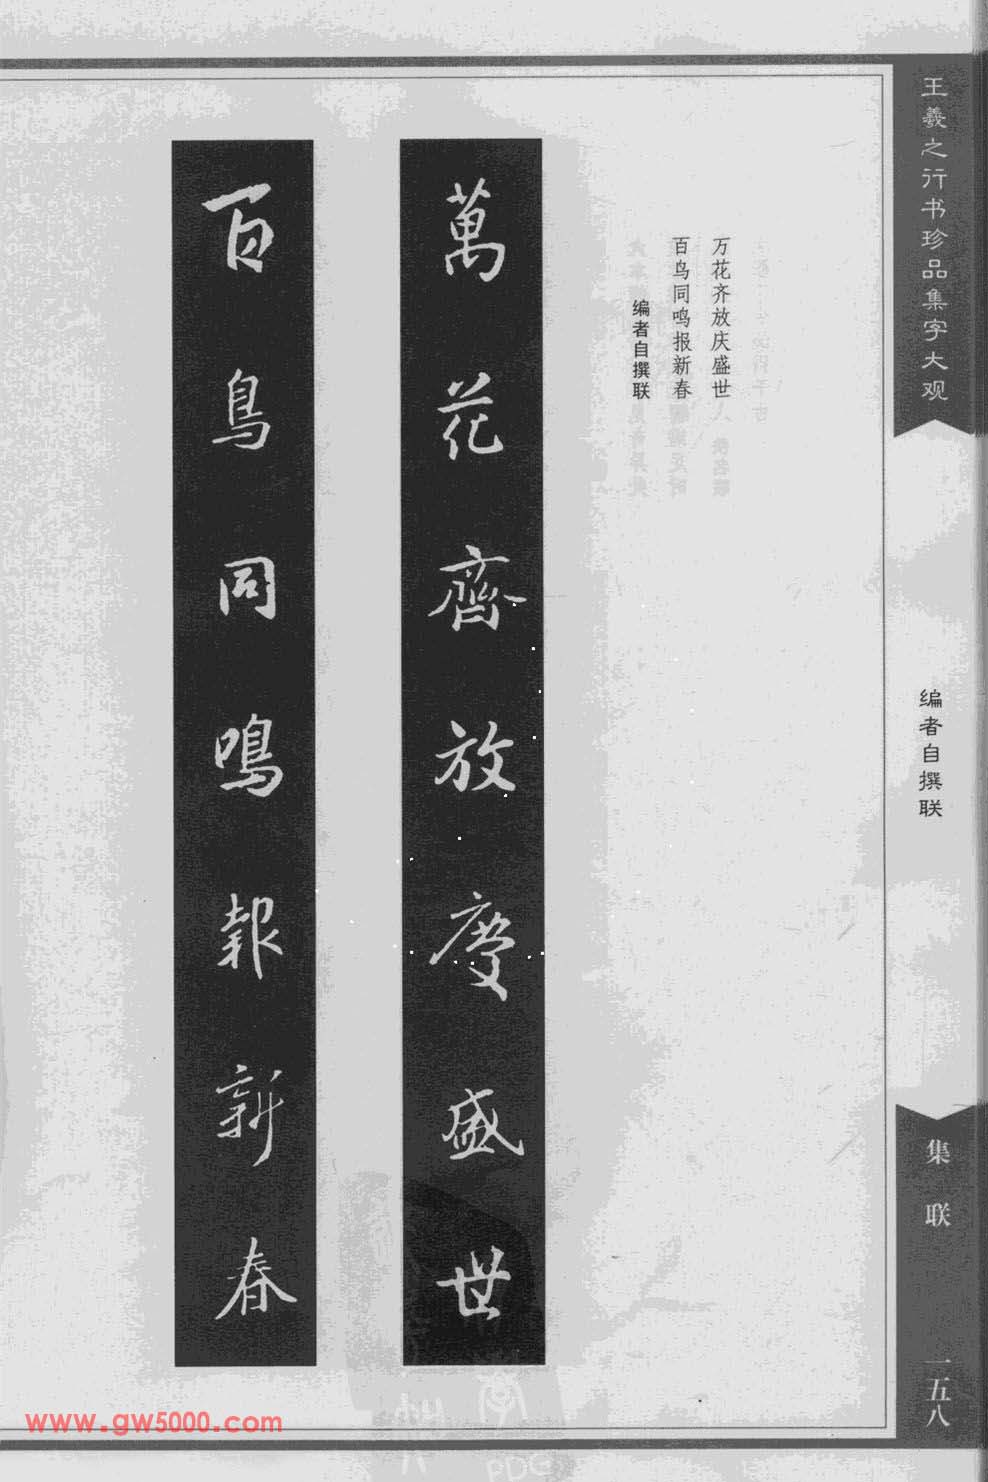 王羲之行书珍品集字大观
编者自撰联
集联
一五八
万花齐放庆盛世
百鸟同鸣报新春
编者自撰联
萬花齊放慶盛世
百鳥同鳴報新春
www.gw5000.com
PDG